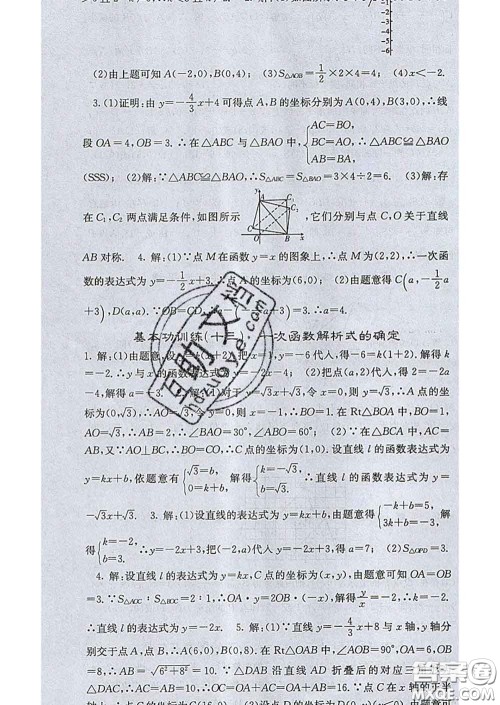 (2)由上题可知 A(-2,0),B(0,4); (3)S△AOB=1/2×2×4=4; (4)x<-2.
3.(1)证明:由 y=-4/3x+4 可得点 A,B 的坐标分别为 A(0,4),B(3,0),∴线
段 OA=4,OB=3. ∴在△ABC 与△BAO 中,{AC=BO, BC=AO, AB=BA,
(SSS); (2)解:∵△ABC≌△BAO,∴S△ABC=S△BAO=3×4÷2=6. (3)解:存
在 C1,C2 两点满足条件,如图所示 ,它们分别与点 C,O 关于直线
AB 对称. 4. 解:(1)∵点 M 在函数 y=x 的图象上,∴点 M 为(2,2),∴一次函
数的表达式为 y=-1/2x+3,∴点 A 的坐标为(6,0); (2)由题意得 C(a,-1/2a
+3),D(a,a).
基本功训练(十 次函数解析式的确定
1. 解:(1)由题意,设 =k(x+2),把 x=1,y=-6 代人,得-6=k(1+2). 解得
k=-2. ∴y 与 x 的函数表达式为 -4; (2)把点(a,-2)代入,得-2=-2a
-4, 解得 a=- (1)对于 √3,令 x=0,则 y=√3,∴A 点的坐标为
(0,√3),∴AO=√3. 令 y=0,则 x=-1,∴BO=1. 在 Rt△BOA 中,BO=1,
AO=√3,∴AB=2,∴∠BAO=30°,∠ABO=60°; (2)∵在△BCA 中,AB=
AC,又∵AO⊥BC,∴BO=CO,∴C 点的坐标为(1,0). 设直线 l 的函数表达式为
y=kx+b,依题意有{√3=b, 0=k+b, 解得{k=-√3, b=√3. ∴直线 l 的函数表达式为 y=
-√3x+√3. 3. 解:(1)设直线的表达式为 y=kx+b,由题意得{-k+b=5, 3k+b=-3, 解
得{k=-2, b=3. ∴y=-2x+3,把(-2,a)代人 y=-2x+3,得 a=7; (2)S△OPD=3.
4. 解:设直线 l 的表达式为 y=kx,C 点的坐标为(x,y),由题意可知 OA=OB
=3. ∵S△AOC∶S△BOC=2∶1,∴OA·y=2OB·(-x),∴y=-2x,∴k=-2,
∴直线 l 的表达式为 y=-2x. 5. 解:(1)∵直线 y=-4/3x+8 与 x 轴,y 轴分
别交于点 A,点 B,∴点 A(6,0),B(0,8). 在 Rt△OAB 中,∠AOB=90°,OA=6,
OB=8,∴AB=√6²+8²=10. ∵△DAB 沿直线 AD 折叠后的对应三角形
△DAC,∴AC=AB=10,∴OC=OA+AC=OA+AB=16. ∵点 C 在 x 轴的正半